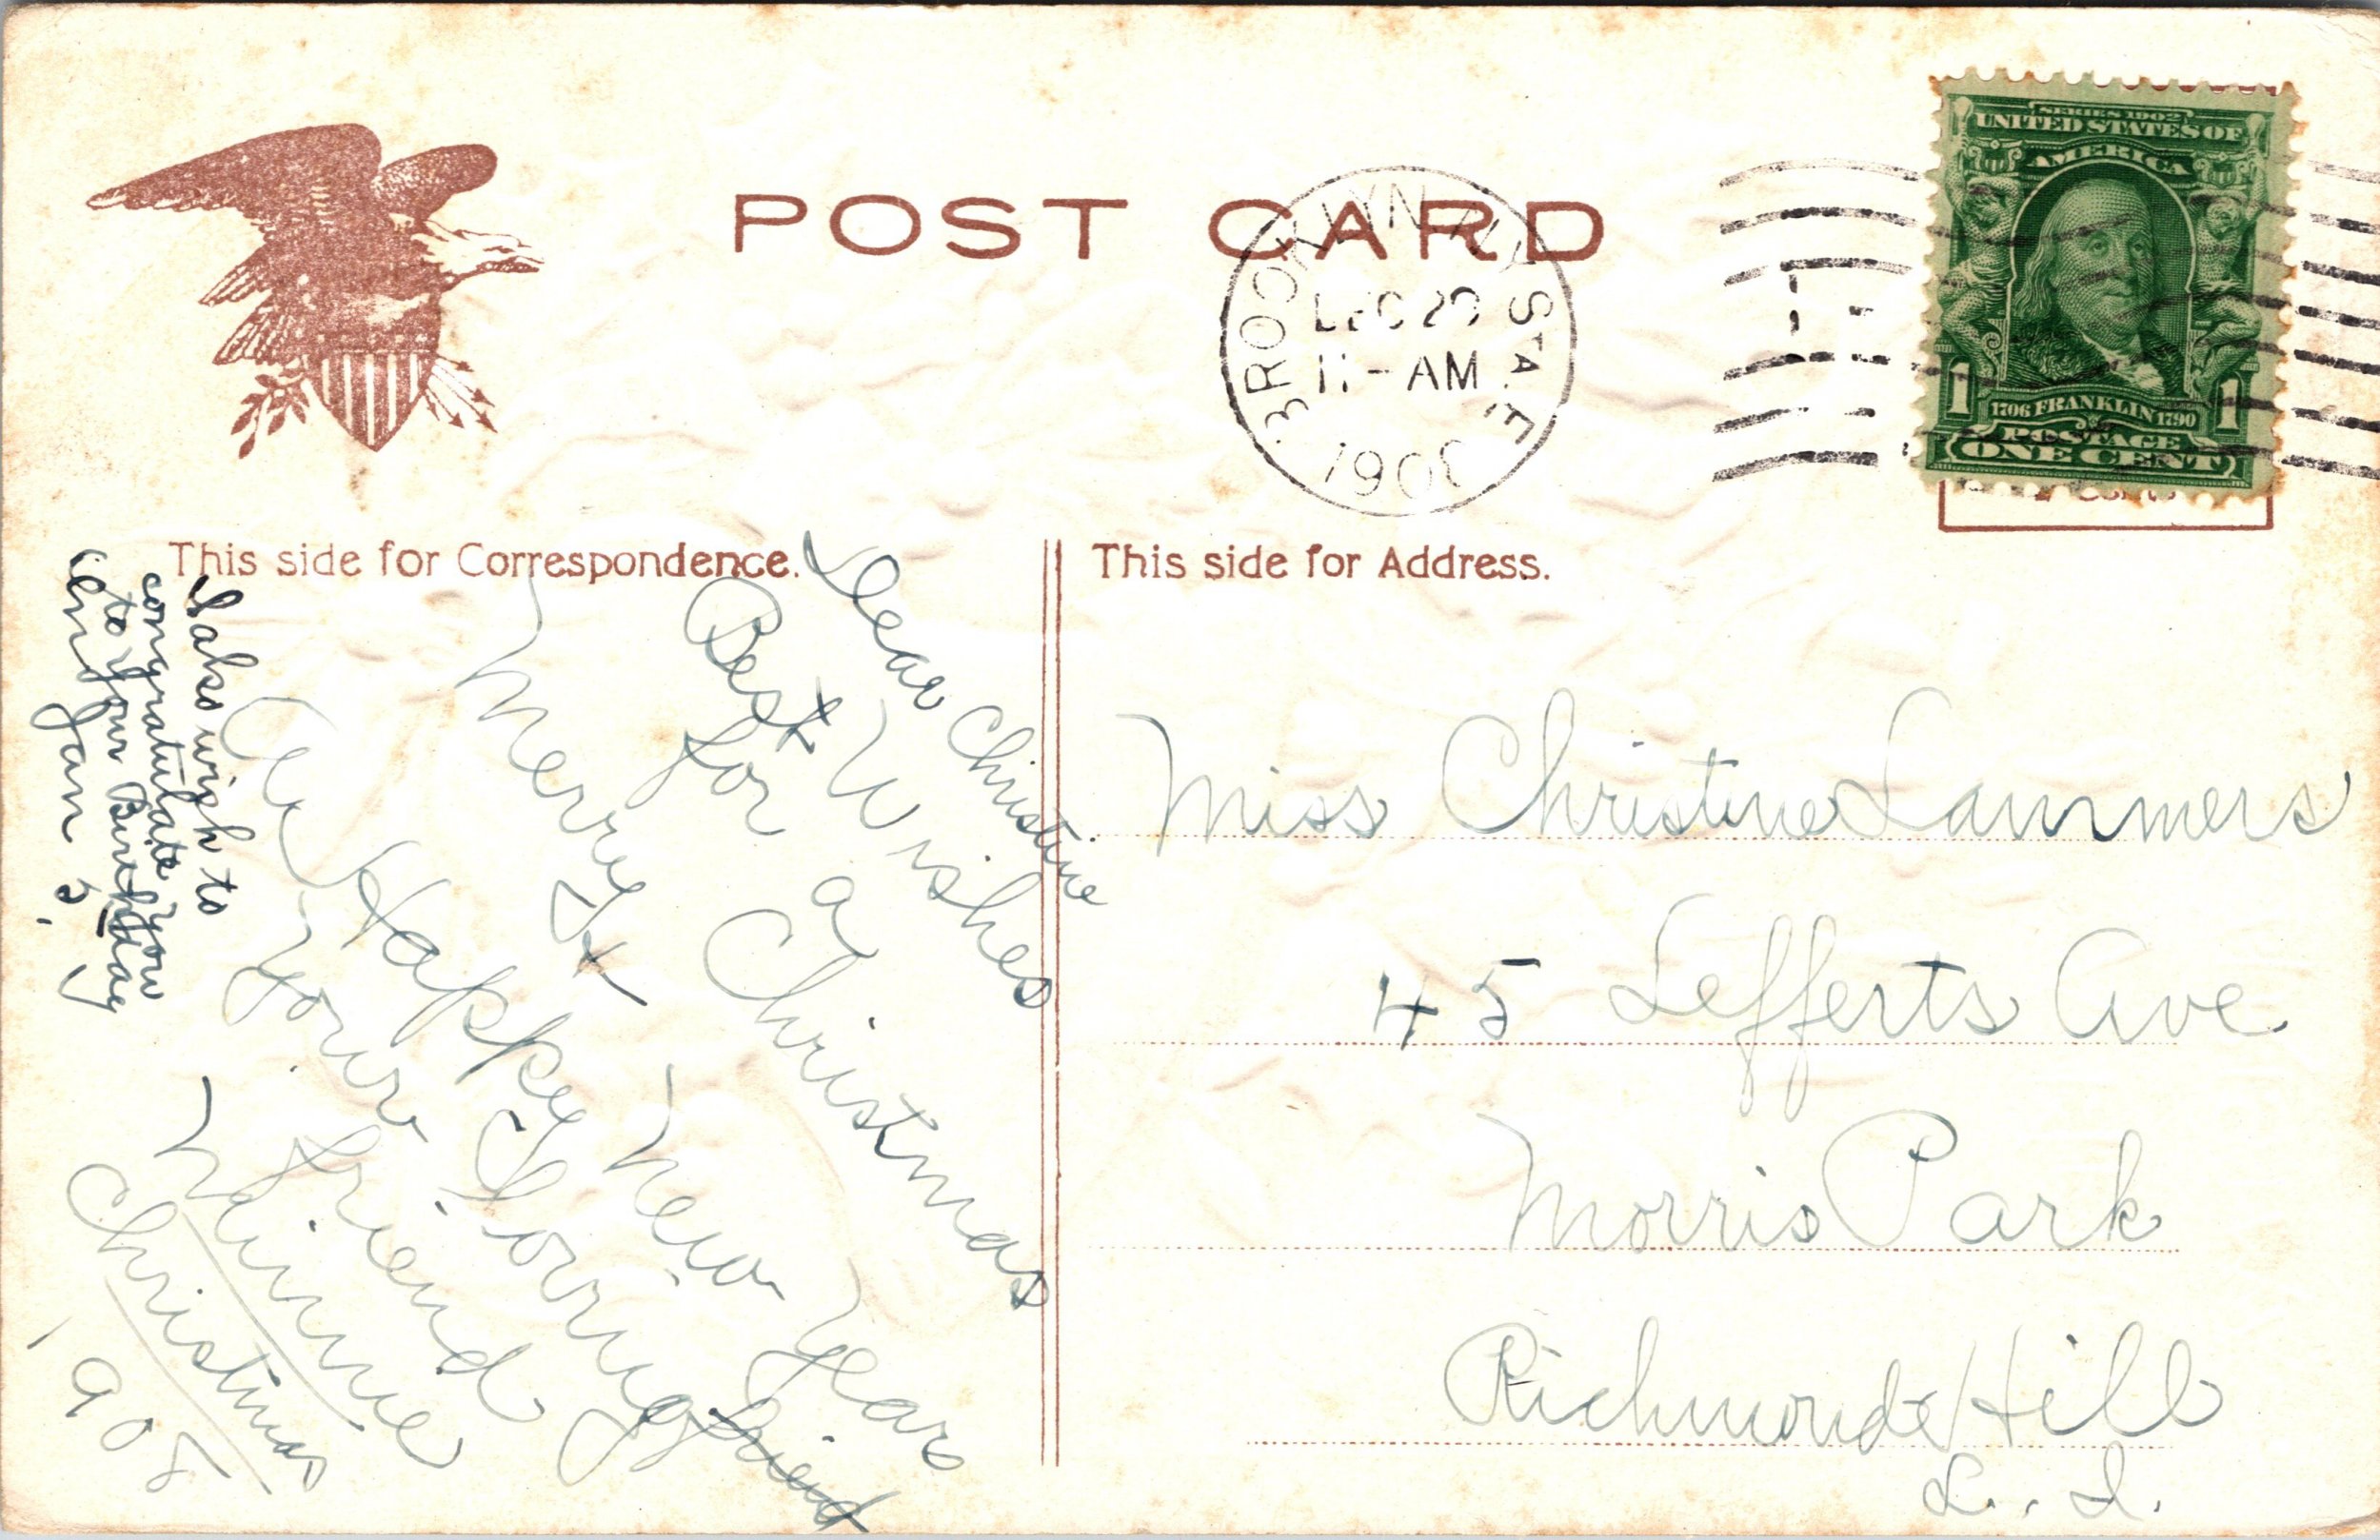 POST CARD
BROOKLYN N.Y. STA. E.
DEC 20
11- AM
190
SERIES 1902
UNITED STATES OF
AMERICA
1 1706 FRANKLIN 1790 1
POSTAGE
ONE CENT
This side for Correspondence.
This side for Address.
Dear Christine
Best Wishes
for a
Merry Christmas
&
a Happy New Years
Your Loving friend
friend
Minnie
Christmas
1908
I also wish to
congratulate you
to your Birthday
on Jan 3.
Miss Christine Lammers
45 Lefferts Ave
Morris Park
Richmond Hill
L. I.